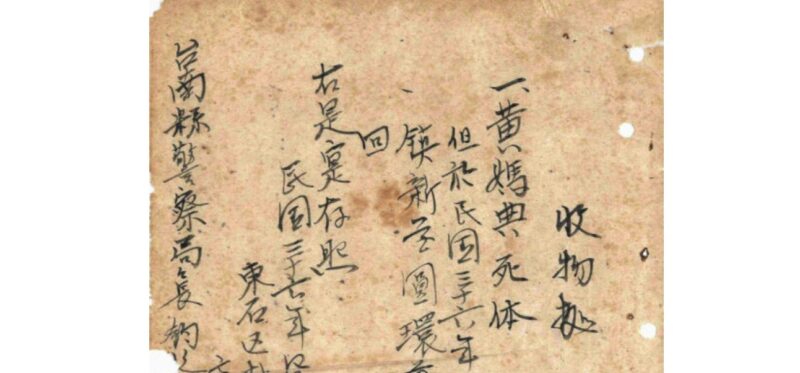 收物據
一、黃媽典死体
但於民國三十六年
鎮新营圓環
回
右是實存照
民國三十六年
東石区
台南縣警察局長鈞